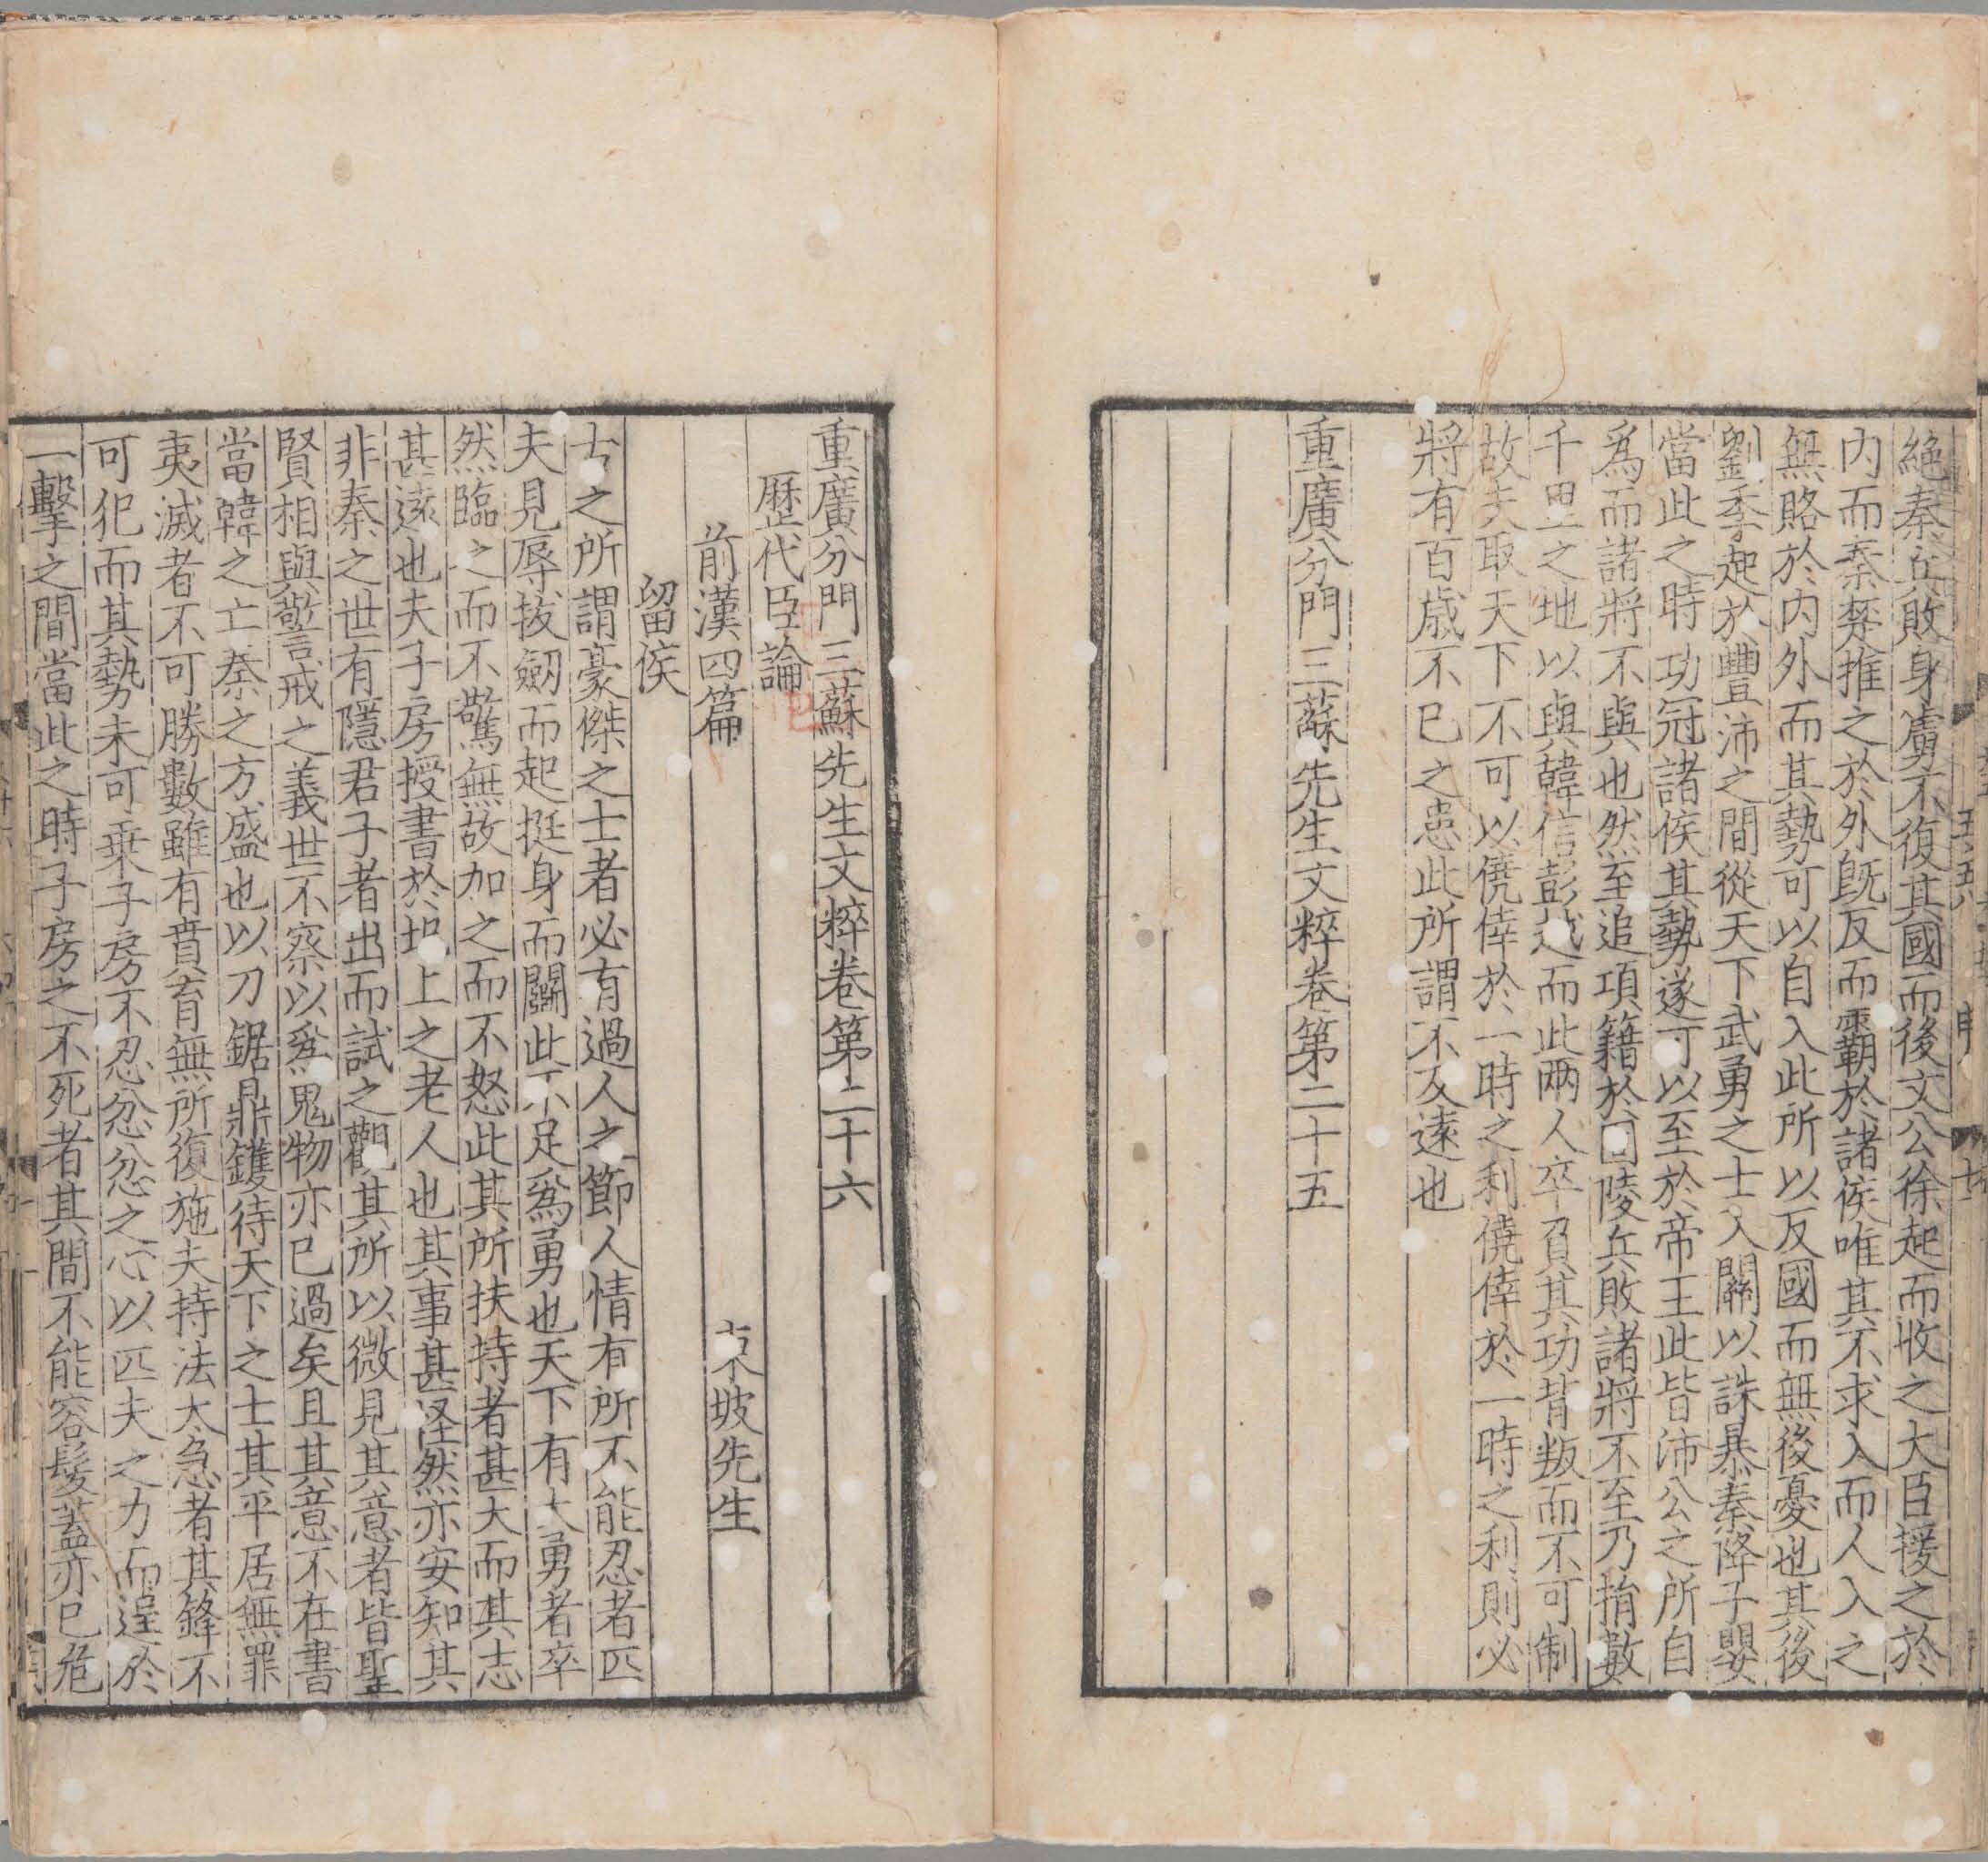 絶秦兵敗身虜不復其國而後文公徐起而收之大臣援之於
内而秦楚推之於外既反而霸於諸侯唯其不求入而人入之
無賂於内外而其勢可以自入此所以反國而無後憂也其後
劉季起於豐沛之間從天下武勇之士入關以誅暴秦降子嬰
當此之時功冠諸侯其勢遂可以至於帝王此皆沛公之所自
爲而諸將不與也然至追項籍於固陵兵敗諸將不至乃捐數
千里之地以與韓信彭越而此兩人卒負其功背叛而不可制
故夫取天下不可以僥倖於一時之利僥倖於一時之利則必
將有百歳不已之患此所謂不及遠也
重廣分門三蘇先生文粹卷第二十五
重廣分門三蘇先生文粹卷第二十六
歷代臣論
前漢四篇 東坡先生
留侯
古之所謂豪傑之士者必有過人之節人情有所不能忍者匹
夫見辱拔劒而起挺身而鬭此不足爲勇也天下有大勇者卒
然臨之而不驚無故加之而不怒此其所扶持者甚大而其志
甚遠也夫子房授書於圯上之老人也其事甚怪然亦安知其
非秦之世有隱君子者出而試之觀其所以微見其意者皆聖
賢相與警戒之義世不察以爲鬼物亦已過矣且其意不在書
當韓之亡秦之方盛也以刀鋸鼎鑊待天下之士其平居無罪
夷滅者不可勝數雖有賁育無所復施夫持法太急者其鋒不
可犯而其勢未可乗子房不忍忿忿之心以匹夫之力而逞於
一擊之間當此之時子房之不死者其間不能容髮蓋亦已危